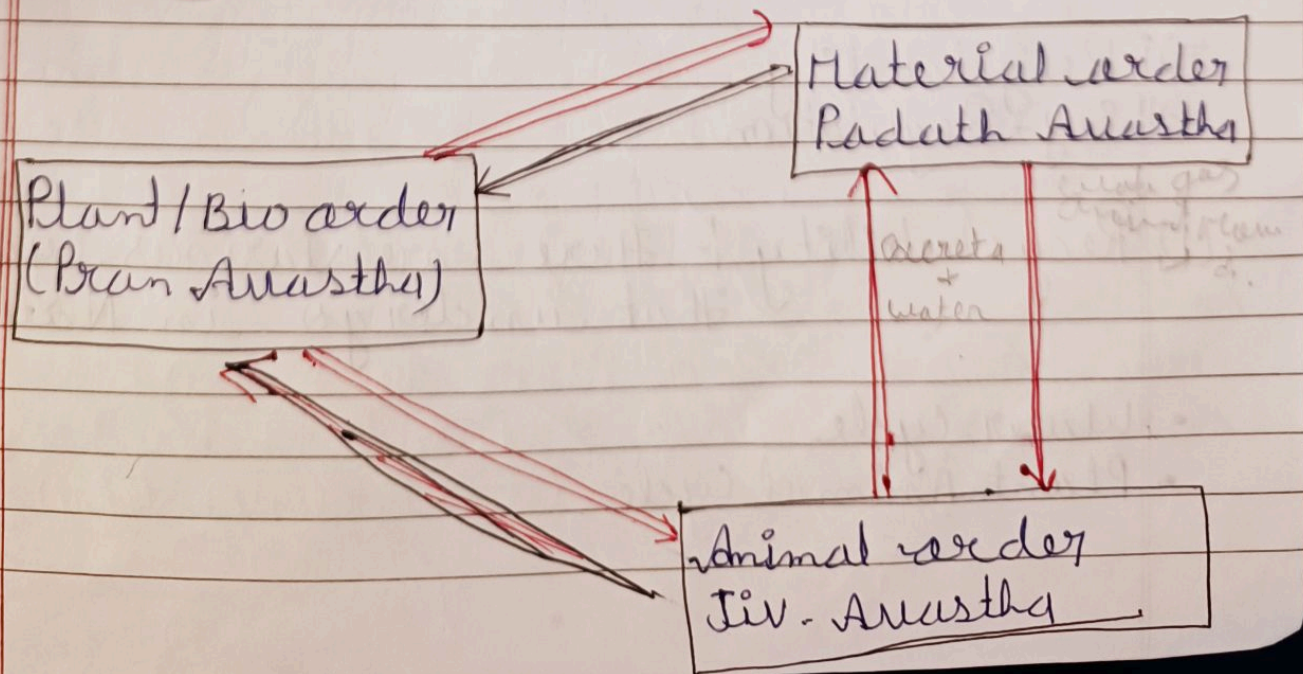 Material order
Padath Avastha
Plant/Bio order
(Pran Avastha)
excreta
+
water
Animal order
Jiv. Avastha